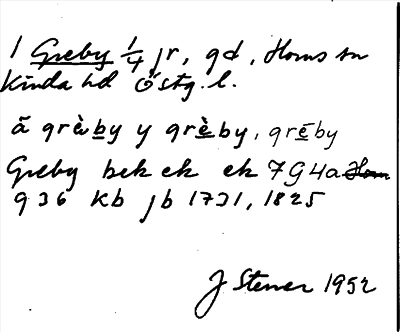 1 Greby 1/4 jr, gd, Horns sn
Kinda hd Östg. l.
ā grὲby y grὲby, grēby
Greby bek ek ek 7G4a
936 Kb jb 1731, 1825
J Stener 1952